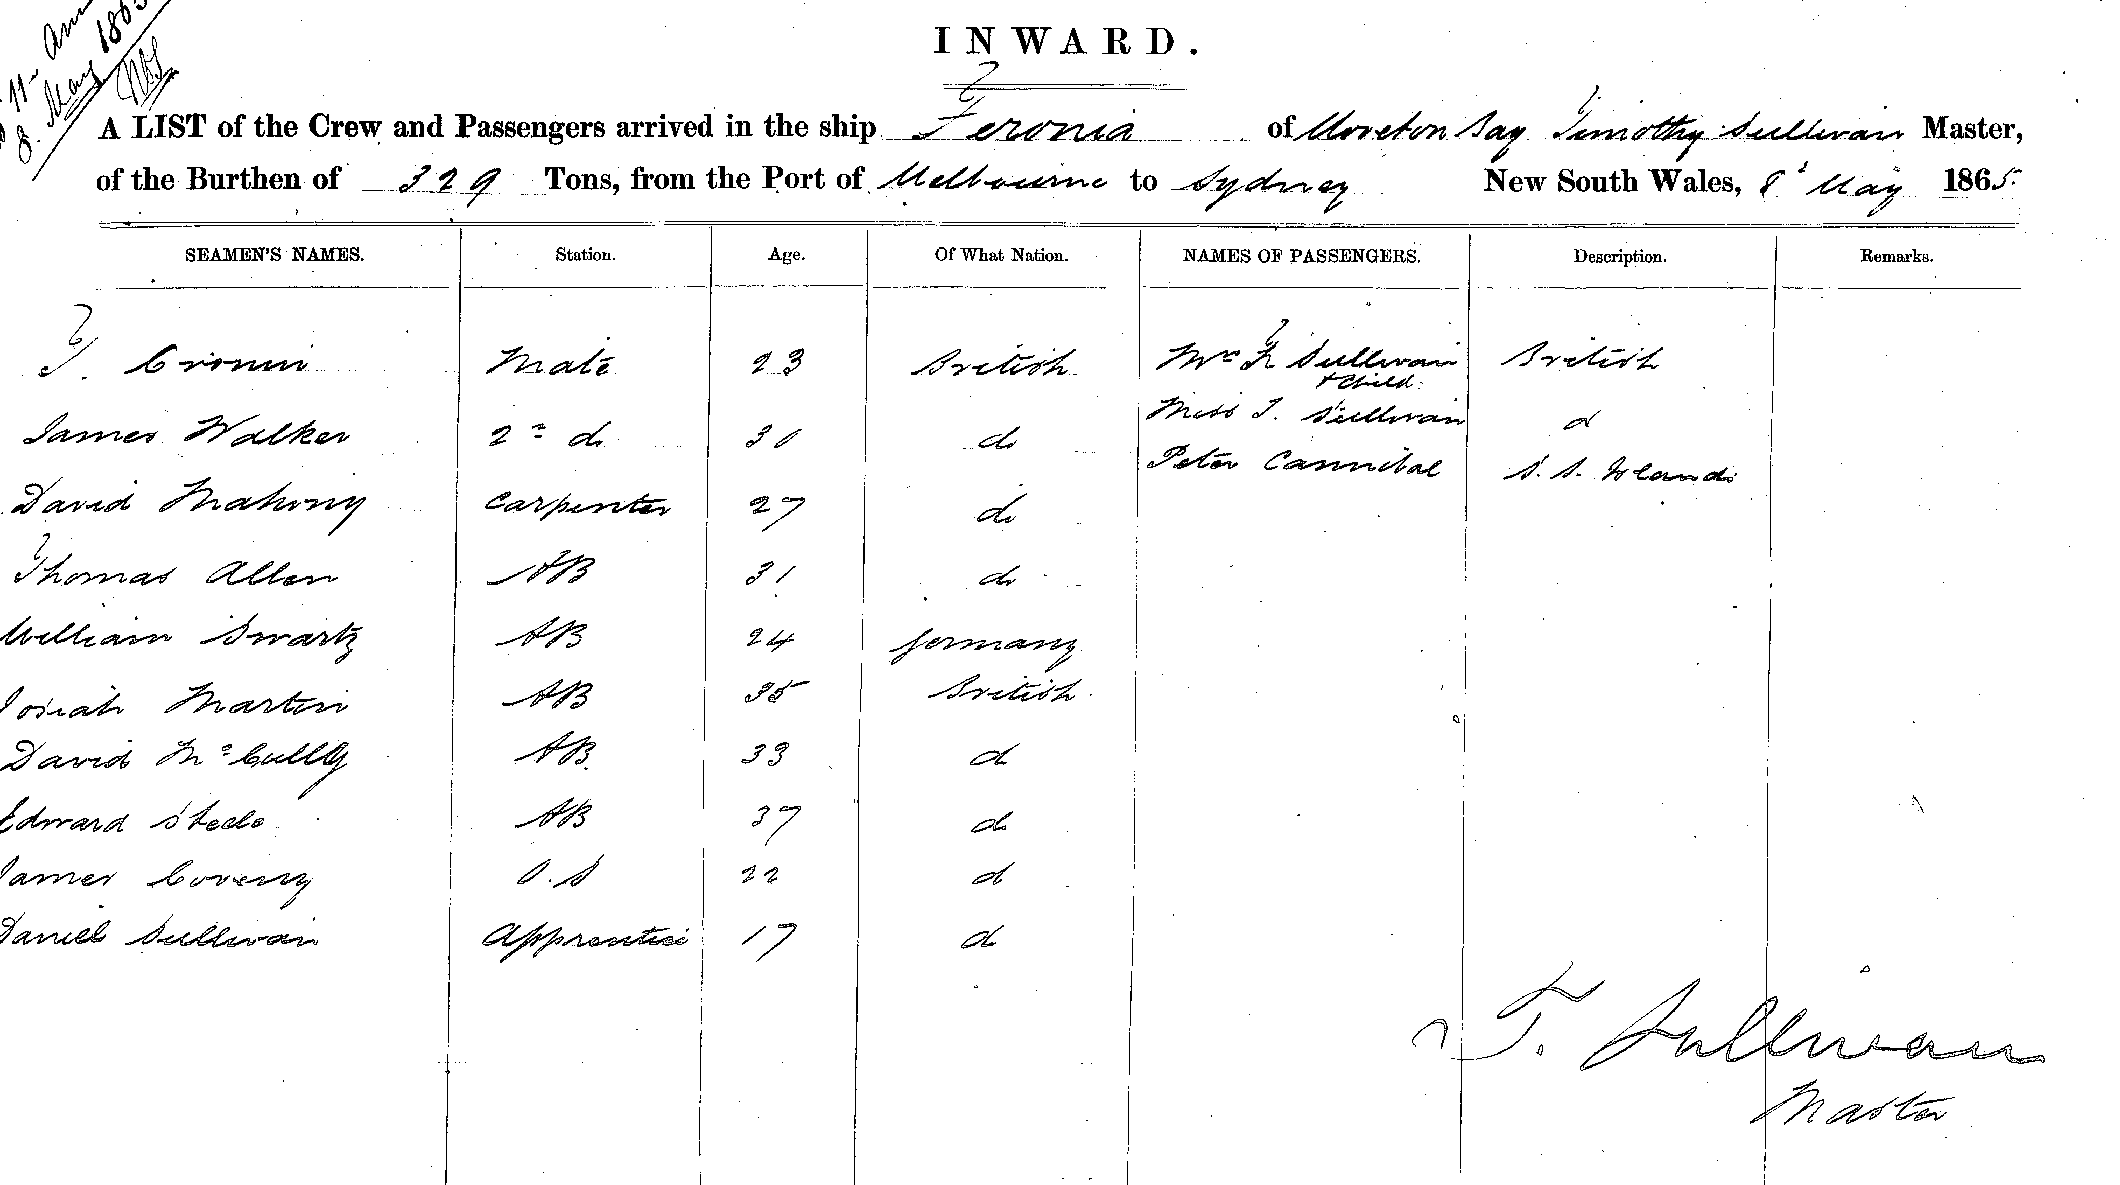 11 am
8. May 1865
INWARD.
A LIST of the Crew and Passengers arrived in the ship Feronia of Moreton Bay Timothy Sullivan Master,
of the Burthen of 329 Tons, from the Port of Melbourne to Sydney New South Wales, 8 May 1865.
SEAMEN'S NAMES. Station. Age. Of What Nation. NAMES OF PASSENGERS. Description. Remarks.
T. Cronin Mate 23 British Mrs Sullivan British
+ Child.
James Walker 2nd do 30 do Miss T. Sullivan do
Peter Cannibal S. S. Islands
David Mahony Carpenter 27 do
Thomas Allen AB 31 do
William Swartz AB 24 Germany
Josiah Martin AB 35 British
David McCully AB 33 do
Edward Steele AB 37 do
James Coveny O.S 22 do
Daniel Sullivan Apprentice 17 do
T. Sullivan
Master